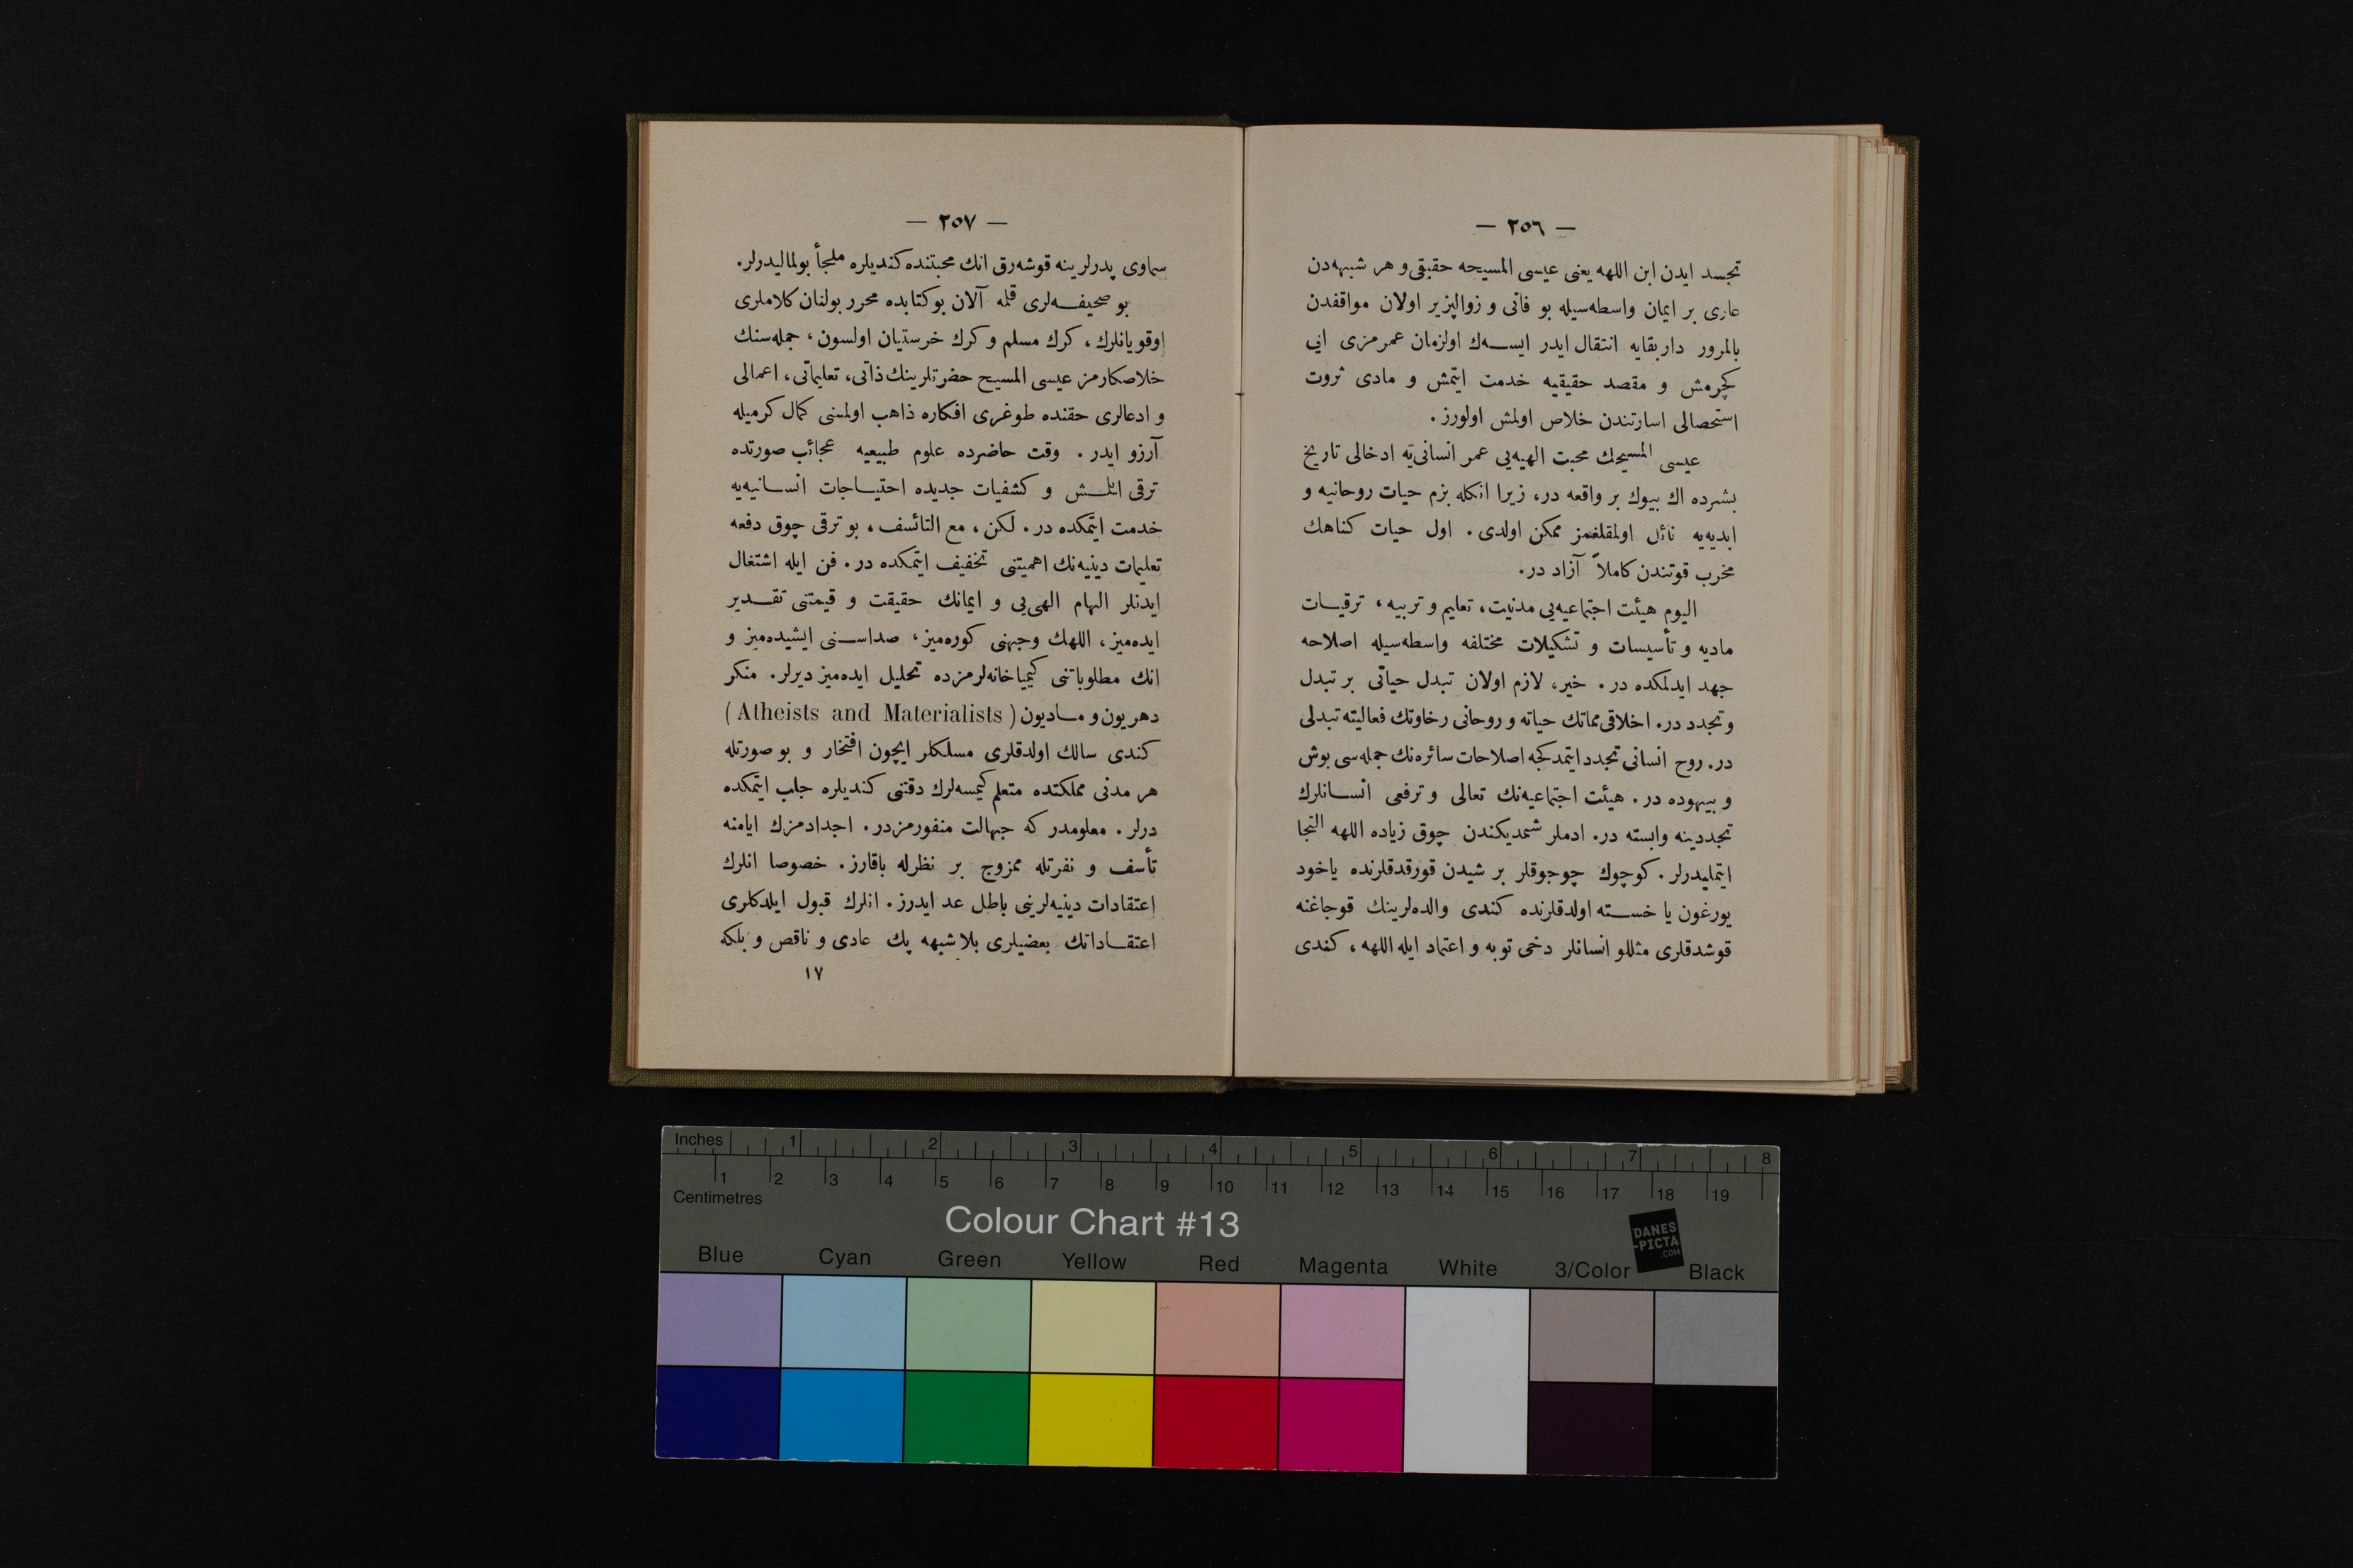 — ٢٥٦ —
تجسد ايدن ابن اللهه يعنى عيسى المسيحه حقيقى و هر شبهه‌دن
عارى بر ايمان واسطه‌سيله بو فانى و زوالپزير اولان مواقفدن
بالمرور داربقايه انتقال ايدر ايســه‌ك اولزمان عمرمزى ايى
كچرمش و مقصد حقيقيه خدمت ايتمش و مادى ثروت
استحصالى اسارتندن خلاص اولمش اولورز .
عيسى المسيحك محبت الهيه‌يى عمر انسانى‌يه ادخالى تاريخ
بشرده اك بيوك بر واقعه در، زيرا انكله بزم حيات روحانيه و
ابديه‌يه نائل اولمقلغمز ممكن اولدى . اول حيات كناهك
مخرب قوتندن كاملاً آزاد در.
اليوم هيئت اجتماعيه‌يى مدنيت، تعليم و تربيه ، ترقيــات
ماديه و تأسيسات و تشكيلات مختلفه واسطه‌سيله اصلاحه
جهد ايدلمكده در . خير، لازم اولان تبدل حياتى بر تبدل
و تجدد در. اخلاقى مماتك حياته و روحانى رخاوتك فعاليته تبدلى
در. روح انسانى تجدد ايتمدكجه اصلاحات سائره‌نك جمله‌سى بوش
و بيهوده در . هيئت اجتماعيه‌نك تعالى و ترفعى انســانلرك
تجددينه وابسته در. ادملر شمديكندن چوق زياده اللهه التجا
ايتمليدرلر . كوچوك چوجوقلر بر شيدن قورقدقلرنده ياخود
يورغون يا خســته اولدقلرنده كندى والده‌لرينك قوجاغنه
قوشدقلرى مثللو انسانلر دخى توبه و اعتماد ايله اللهه ، كندى
— ٢٥٧ —
سماوى پدرلرينه قوشه‌رق انك محبتنده كنديلره ملجأ بولماليدرلر.
بو صحيفــه‌لرى قلمه آلان بو كتابده محرر بولنان كلاملرى
اوقويانلرك ، كرك مسلم و كرك خرستيان اولسون ، جمله‌سنك
خلاصكارمز عيسى المسيح حضرتلرينك ذاتى، تعليماتى، اعمالى
و ادعالرى حقنده طوغرى افكاره ذاهب اولمسنى كمال كرميله
آرزو ايدر . وقت حاضرده علوم طبيعيه عجائب صورتده
ترقى ايتمش و كشفيات جديده احتيــاجات انســانيه‌يه
خدمت ايتمكده در . لكن ، مع التائسف ، بو ترقى چوق دفعه
تعليمات دينيه‌نك اهميتنى تخفيف ايتمكده در . فن ايله اشتغال
ايدنلر الهام الهى‌يى و ايمانك حقيقت و قيمتنى تقــدير
ايده‌ميز ، اللهك وجهنى كوره‌ميز ، صداســنى ايشيده‌ميز و
انك مطلوباتنى كيمياخانه‌لرمزده تحليل ايده‌ميز ديرلر . منكر
دهريون و مــاديون ( Atheists and Materialists )
كندى سالك اولدقلرى مسلكلر ايچون افتخار و بو صورتله
هر مدنى مملكتده متعلم كيمسه‌لرك دقتنى كنديلره جلب ايتمكده
درلر . معلومدر كه جهالت منفورمزدر . اجدادمزك ايامنه
تأسف و نفرتله ممزوج بر نظرله باقارز . خصوصا انلرك
اعتقادات دينيه‌لرينى باطل عد ايدرز . انلرك قبول ايلدكلرى
اعتقــاداتك بعضيلرى بلا شبهه پك عادى و ناقص و بلكه
١٧
Inches 1 2 3 4 5 6 7 8
1 2 3 4 5 6 7 8 9 10 11 12 13 14 15 16 17 18 19
Centimetres
Colour Chart #13
DANES
-PICTA
.COM
Blue Cyan Green Yellow Red Magenta White 3/Color Black